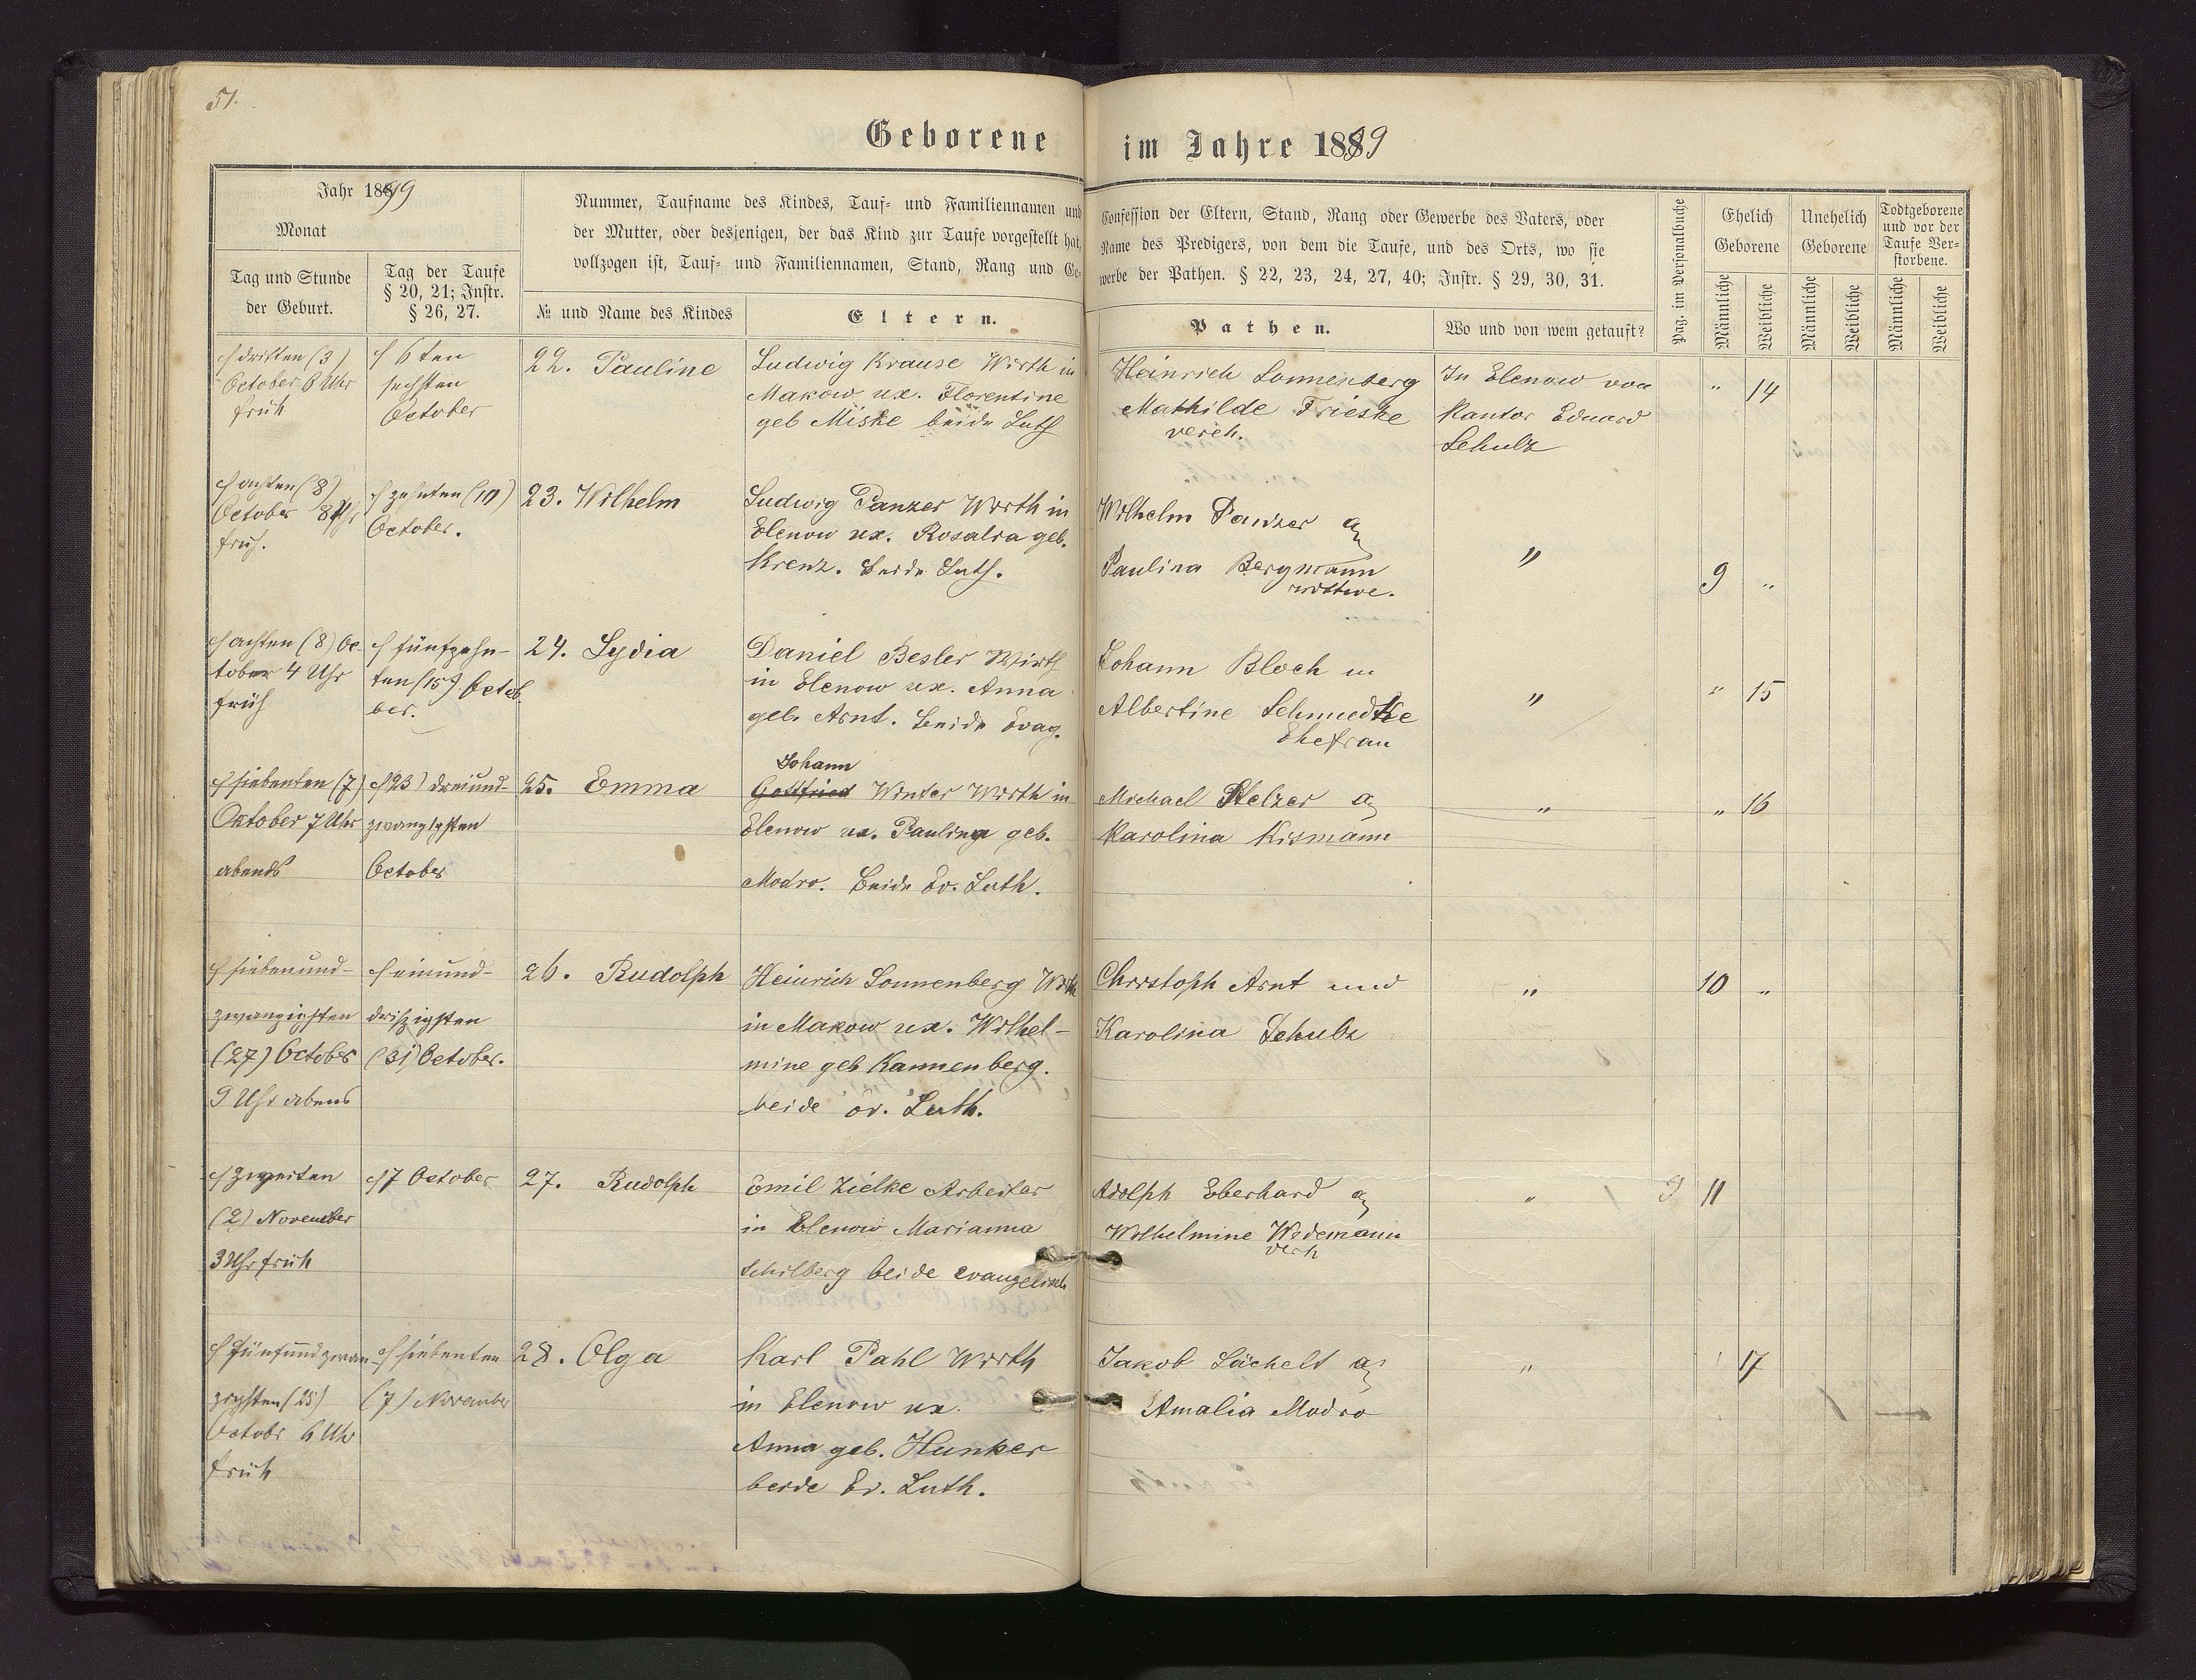 51.
Geborene im Jahre 1899
Jahr 1899
Monat
Tag und Stunde
der Geburt.
Tag der Taufe
§ 20, 21; Instr.
§ 26, 27.
Nummer, Taufname des Kindes, Tauf- und Familiennamen und
der Mutter, oder desjenigen, der das Kind zur Taufe vorgestellt hat,
vollzogen ist, Tauf- und Familiennamen, Stand, Rang und Ge-
№ und Name des Kindes
Eltern.
Confession der Eltern, Stand, Rang oder Gewerbe des Vaters, oder
Name des Predigers, von dem die Taufe, und des Orts, wo sie
werbe der Pathen. § 22, 23, 24, 27, 40; Instr. § 29, 30, 31.
Pathen.
Wo und von wem getauft?
Pag. im Personalbuche
Ehelich
Geborene
Unehelich
Geborene
Todtgeborene
und vor der
Taufe Ver-
storbene.
Männliche
Weibliche
Männliche
Weibliche
Männliche
Weibliche
dritten (3)
October 6 Uhr
früh
6 ten
sechsten
October
22. Pauline
Ludwig Krause Wirth in
Makow ux. Florentine
geb Miske beide Luth
Heinrich Sonnenberg
Mathilde Frieske
vereh.
In Elenow von
Kantor Eduard
Schulz
" 14
achten (8)
October 8 Uhr
früh.
zehnten (10)
October.
23. Wilhelm
Ludwig Panzer Wirth in
Elenow ux. Rosalia geb.
Krenz. beide Luth.
Wilhelm Panzer
Paulina Bergmann
wittwe.
"
9 "
achten (8) Oc-
tober 4 Uhr
früh
fünfzehn-
ten (15) Octob
ber.
24. Lydia
Daniel Besler Wirth
in Elenow ux. Anna
geb. Arnt. beide Evag.
Johann Bloch u
Albertine Schmedtke
Ehefrau
"
" 15
siebenten (7)
Oktober 7 Uhr
abends
(23) dreiund-
zwanzigsten
October
25. Emma
Johann
Gottfried Winter Wirth in
Elenow ux. Paulina geb.
Modro. beide Ev. Luth.
Michael Stelzer
Karolina Kismann
"
" 16
siebenund-
zwanzigsten
(27) October
9 Uhr abens
einund-
dreißigsten
(31) October.
26. Rudolph
Heinrich Sonnenberg Wirth
in Makow ux. Wilhel-
mine geb Kannenberg.
beide ev. Luth.
Christoph Arnt und
Karolina Schulz
"
10 "
zweiten
(2) November
3 Uhr früh
7 October
27. Rudolph
Emil Zielke Arbeiter
in Elenow Marianna
Schilberg beide evangelisch
Adolph Eberhard
Wilhelmine Widemann
verh
"
9 11
fünfundzwan-
zigsten (25)
Octobr 6 Uhr
früh
siebenten
(7) November
28. Olga
Karl Pahl Wirth
in Elenow ux.
Anna geb. Hunker
beide Ev. Luth.
Jakob Lächelt
Amalia Modro
"
17